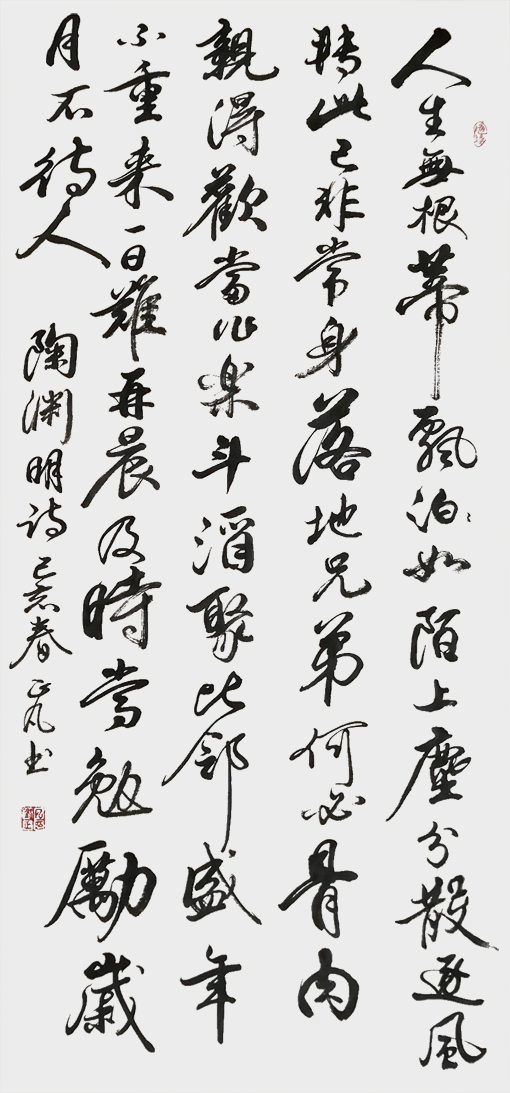 人生無根蒂飄泊如陌上塵分散逐風
轉此已非常身落地兄弟何必骨肉
親得歡當作楽斗酒聚比鄰盛年
不重来一日難再晨及時當勉勵歲
月不待人 陶渊明诗己亥春正凡书